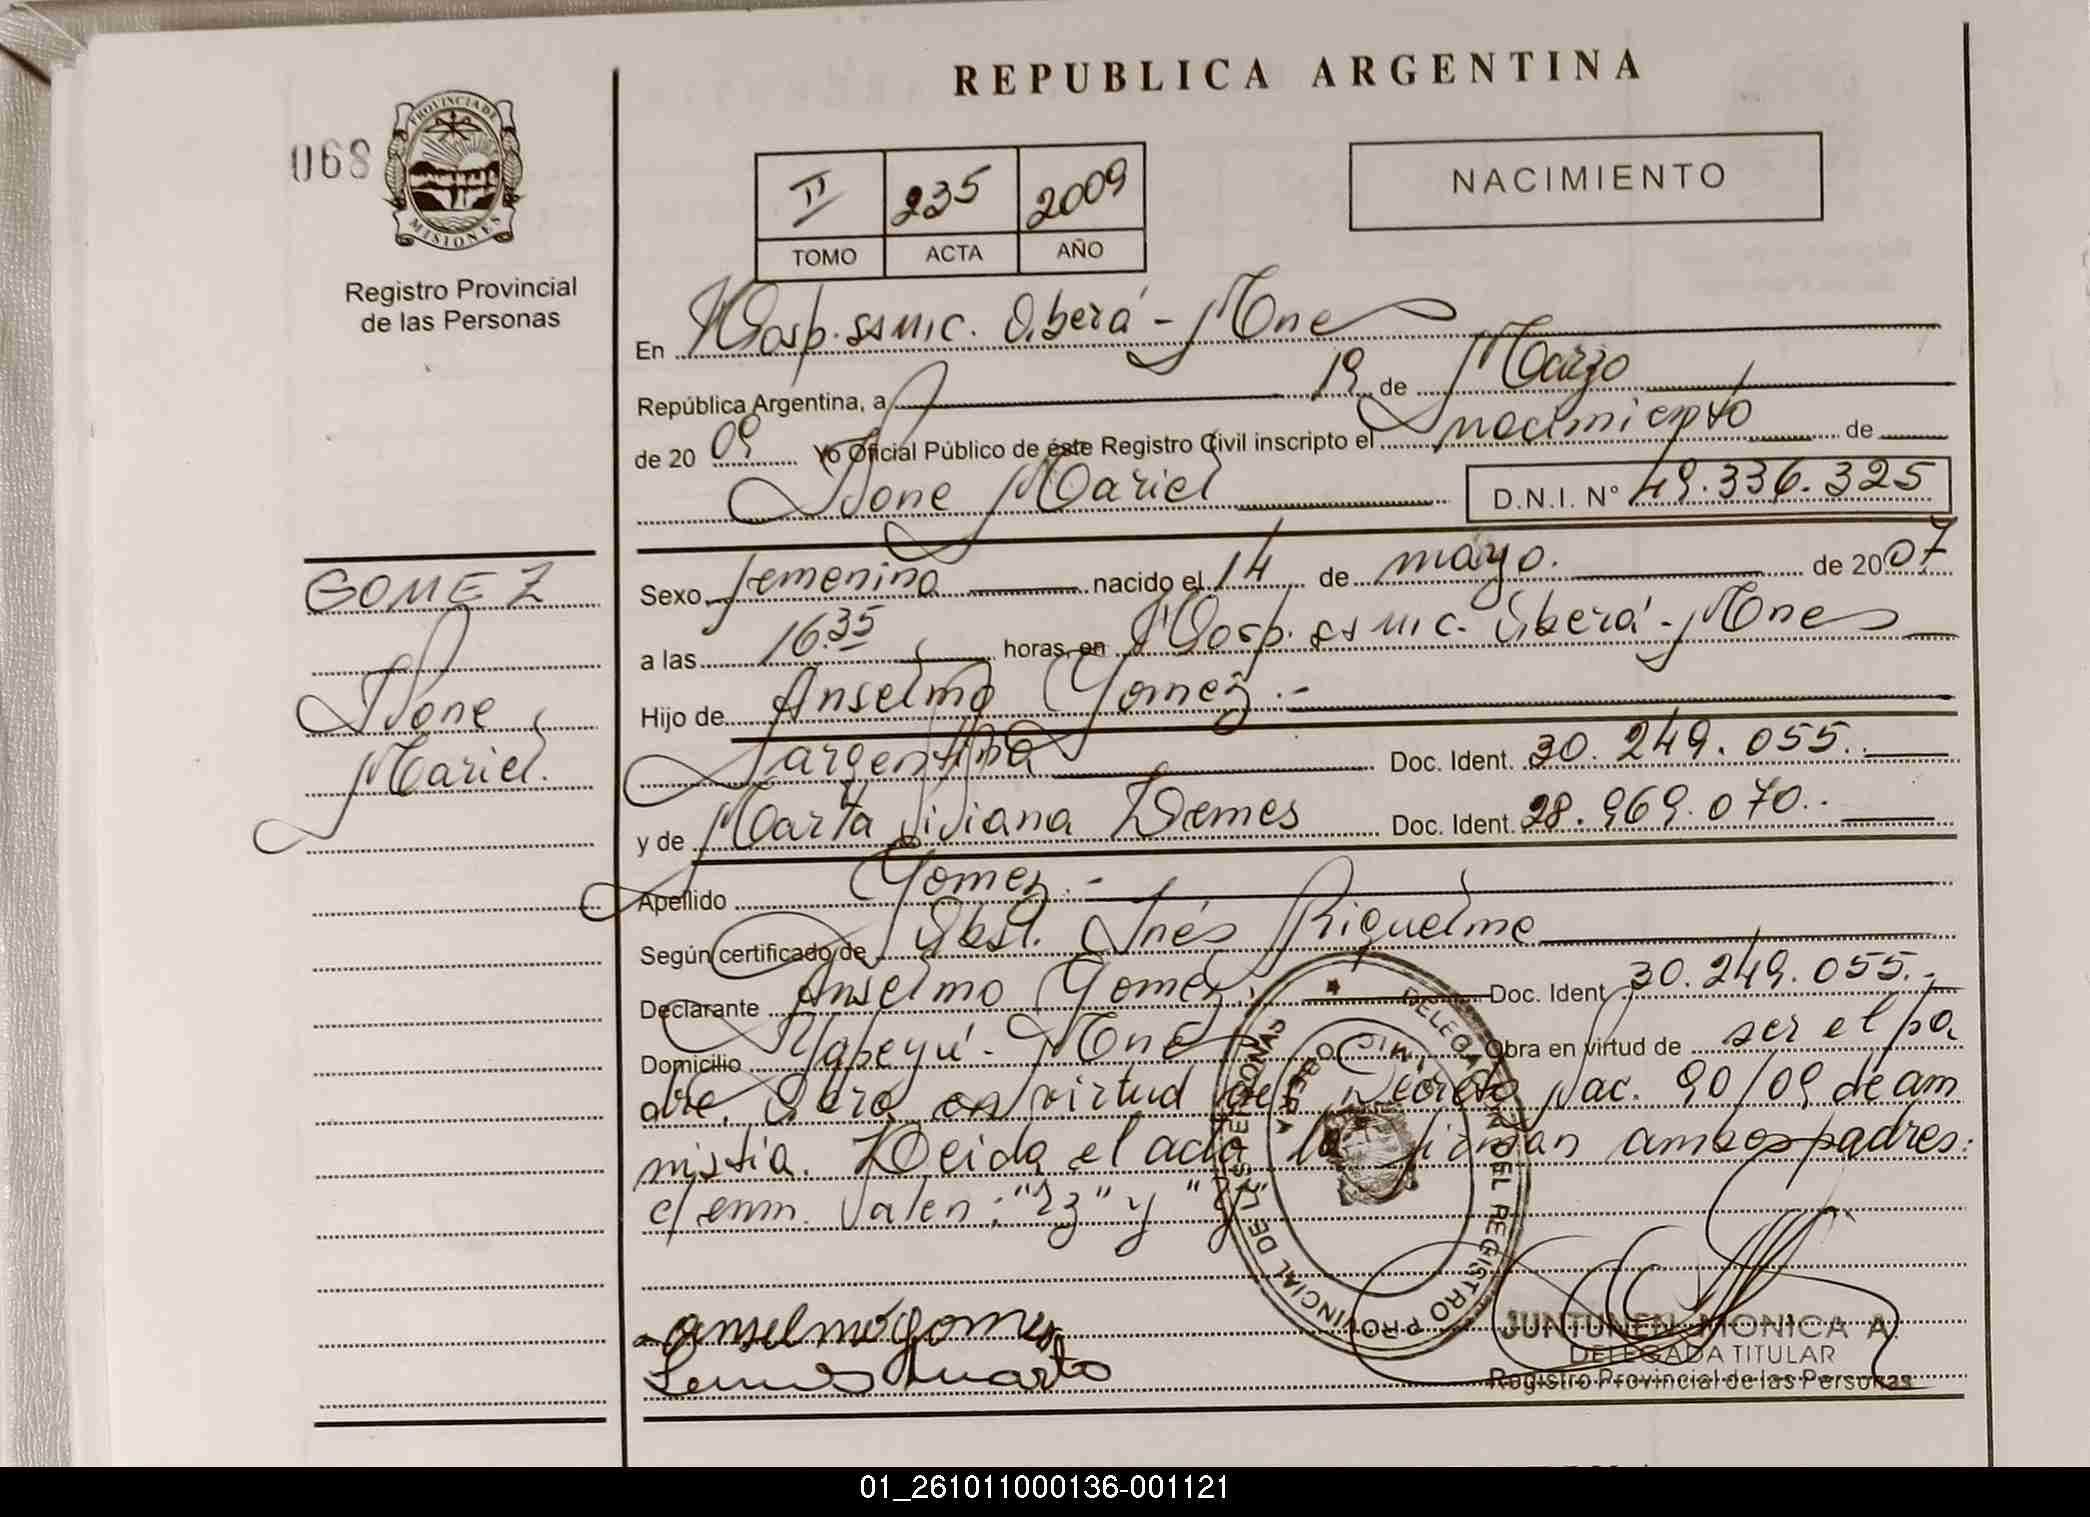 REPUBLICA ARGENTINA
068
PROVINCIA DE
MISIONES
Registro Provincial
de las Personas
II 235 2009
TOMO ACTA AÑO
NACIMIENTO
En Hosp. SSMIC. Oberá - Mnes
República Argentina, a 19 de Marzo
de 2009 Yo Oficial Público de éste Registro Civil inscripto el nacimiento de
Ivone Mariel D.N.I. N° 49.336.325
GOMEZ
Ivone
Mariel.
Sexo femenino nacido el 14 de mayo. de 2007
a las 16.35 horas, en Hosp. SSMIC. Oberá - Mnes
Hijo de Anselmo Gomez .-
argentina Doc. Ident. 30.249.055.
y de Marta Viviana Demes Doc. Ident. 28.969.070..
Apellido Gomez .-
Según certificado de Obst. Inés Riquelme
Declarante Anselmo Gomez. Doc. Ident 30.249.055.-
Domicilio Yapeyú - Mnes Obra en virtud de ser el pa
dre. Obra en virtud del Decreto Nac. 90/09 de am
nistia. Leida el acta la firman ambos padres:
c/ enm. Valen: "23" y
DELEGACION DEL REGISTRO PROVINCIAL DE LAS PERSONAS
anselmo gomes
JUNTUNEN MONICA A
DELEGADA TITULAR
Registro Provincial de las Personas
01_261011000136-001121